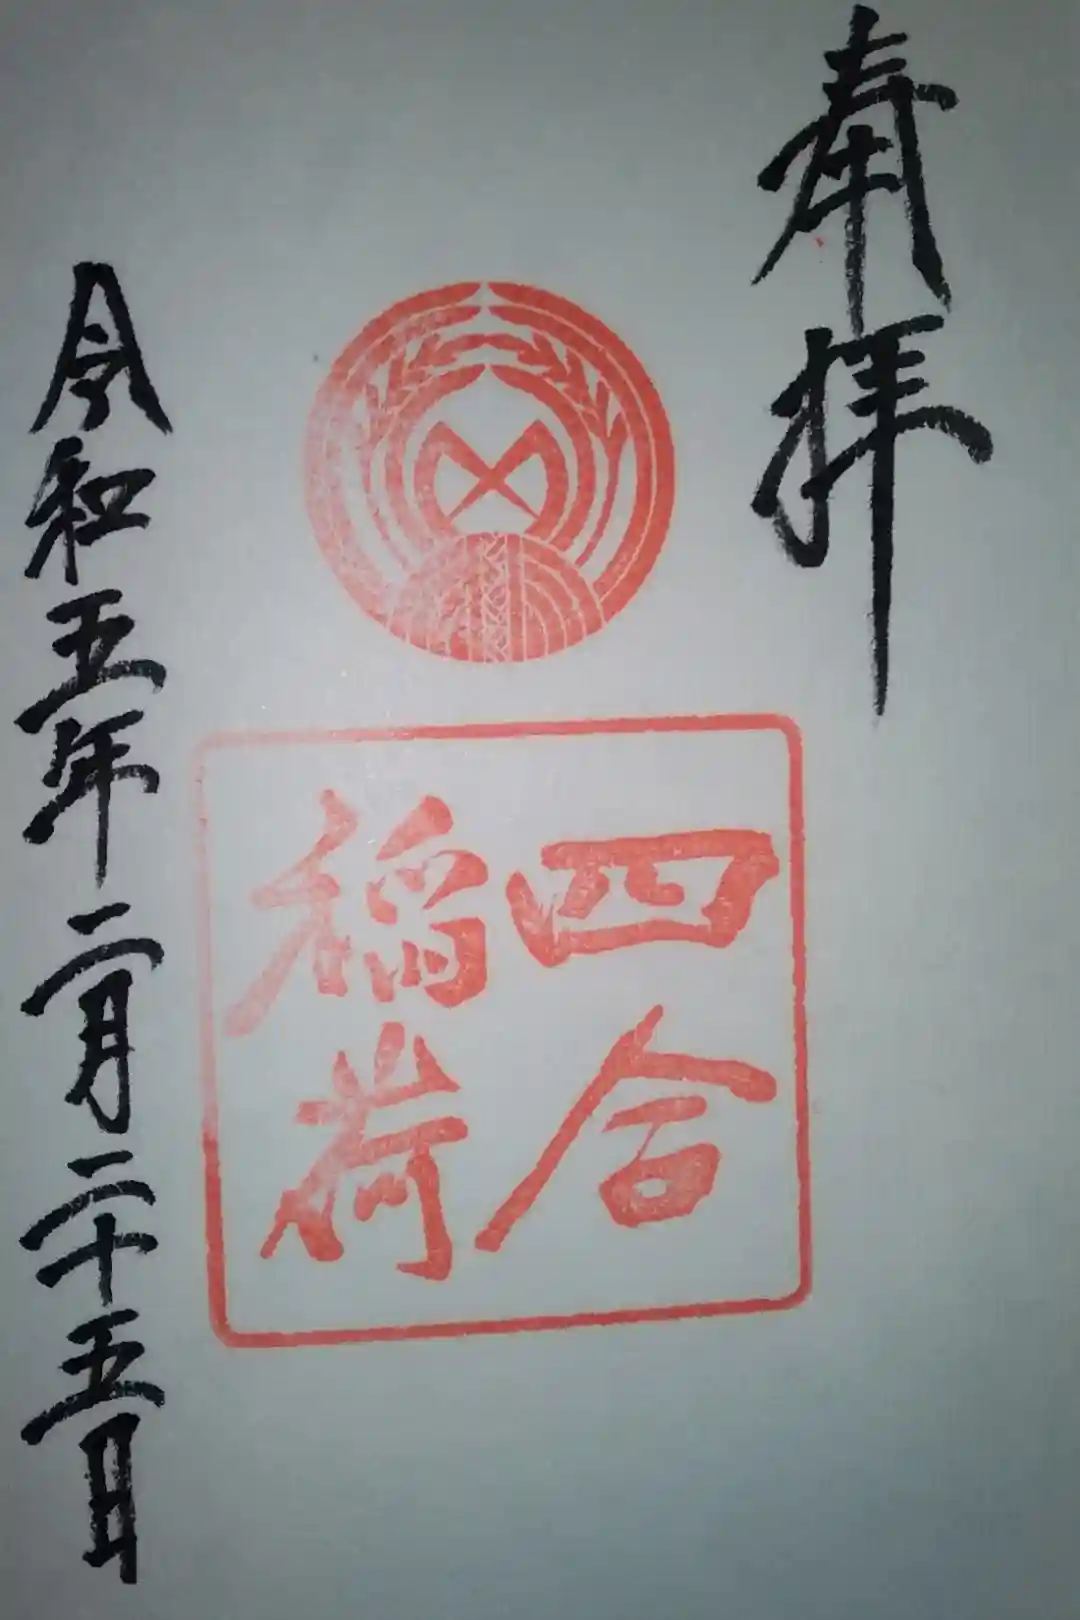 奉拝
四合
稲荷
令和五年二月二十五日